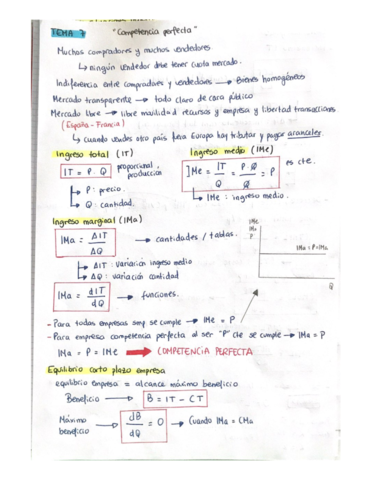 TEMA 7 "Competencia perfecta"
Muchos compradores y muchos vendedores
↳ ningún vendedor debe tener cuota mercado.
Indiferencia entre compradores y vendedores → Bienes homogéneos
Mercado transparente → todo claro de cara público
Mercado libre → libre movilidad recursos y empresa y libertad transacciones
(España-Francia)
↳ cuando vendes otro país fuera Europa hay tributos y pagar aranceles.
Ingreso total (IT)
IT = P · Q
proporcional, producción
↳ P : precio.
↳ Q : cantidad.
Ingreso medio (IMe)
IMe = IT/Q = P·Q/Q = P
es cte.
↳ IMe : ingreso medio.
Ingreso marginal (IMa)
IMa = ΔIT/ΔQ → cantidades / tablas.
↳ ΔIT : variación ingreso medio
↳ ΔQ : variación cantidad
IMa = dIT/dQ → funciones.
IMe
IMa
P
IMa = P = IMe
Q
- Para todas empresas smp se cumple → IMe = P
- Para empresa competencia perfecta al ser "P" cte se cumple → IMa = P
IMa = P = IMe → COMPETENCIA PERFECTA
Equilibrio corto plazo empresa
equilibrio empresa = alcance máximo beneficio
Beneficio → B = IT - CT
Máximo beneficio → dB/dQ = 0 → Cuando IMa = CMa